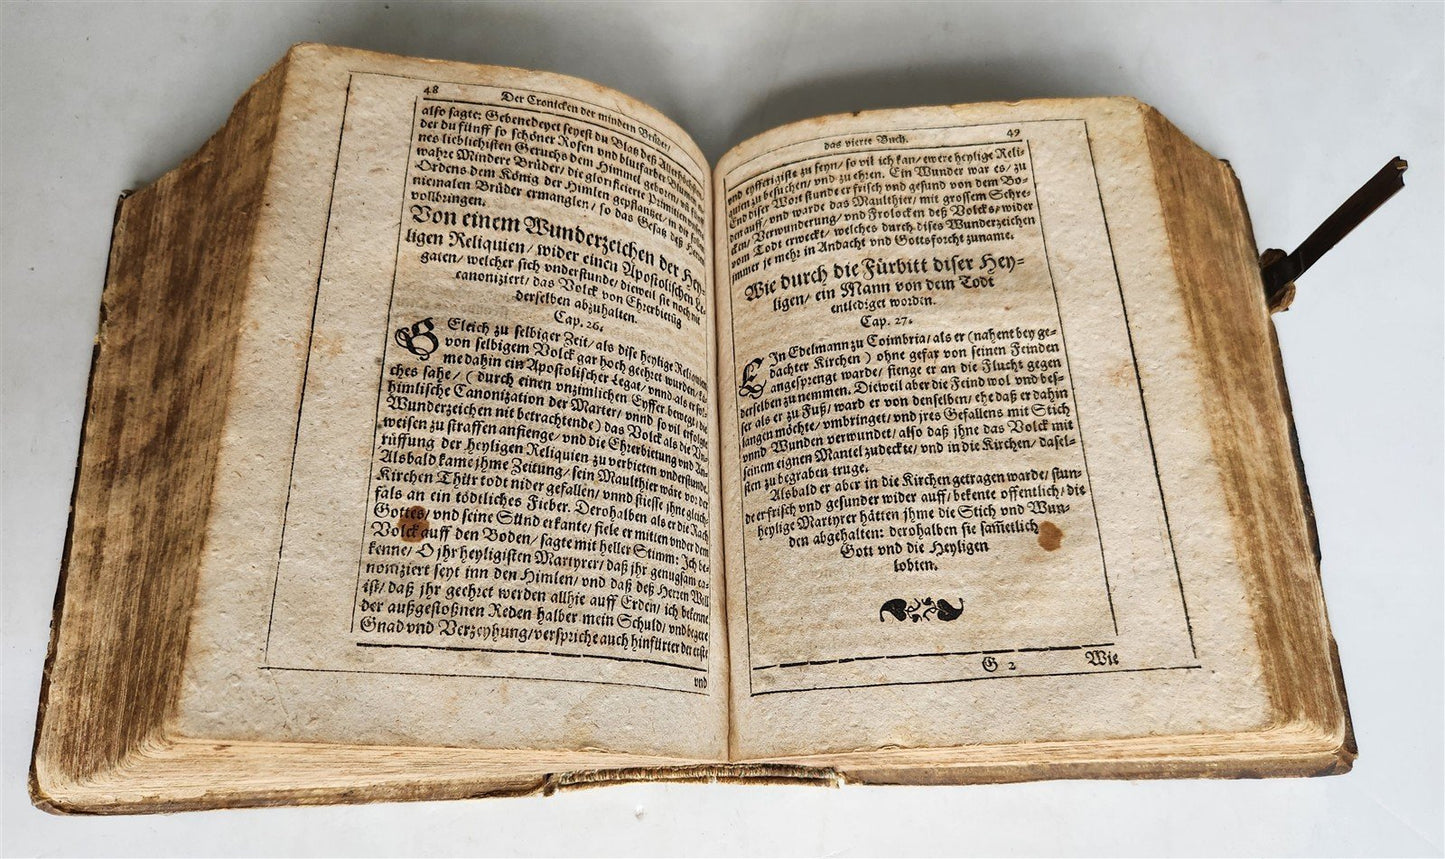 48
Der Cronicken der mindern Brüder/
also sagte: Gebenedeyet seyest du Blatz deß Allerhöchsten
der du fünff so schöner Rosen und blutfarbe Blumen
nes lieblichisten Geruchs dem Himmel geboren
wahre Mindere Brüder/ die glorificierte Primitien
Ordens dem König der Himlen gepflantzet/ in der
niemalen Brüder ermanglen/ so das Gesatz deß Herren
vollbringen.
Von einem Wunderzeichen der Hey-
ligen Reliquien/ wider einen Apostolischen Le-
gaten/ welcher sich vnderstunde/ dieweil sie noch nit
canoniziert/ das Volck von Ehrerbietūg
derselben abzuhalten.
Cap. 26.
GLeich zu selbiger Zeit/ als dise heylige Reliquien
von selbigem Volck gar hoch geehret wurden/
me dahin ein Apostolischer Legat/ vnnd als er sol-
ches sahe/ (durch einen vnzimlichen Eyffer bewegt/ die
himlische Canonization der Marter/ vnnd so vil erfolgte
Wunderzeichen nit betrachtende) das Volck als die Vn-
weisen zu straffen anfienge/ vnd die Ehrerbietung vnd An-
rüffung der heyligen Reliquien zu verbieten vnderstunde.
Alsbald kame jhme Zeitung/ sein Maulthier wäre vor der
Kirchen Thür todt nider gefallen/ vnnd stiesse jhne gleich-
fals an ein tödtliches Fieber. Derohalben als er die Rach
Gottes/ vnd seine Sünd erkante/ fiele er mitten vnder dem
Volck auff den Boden/ sagte mit heller Stimm: Jch be-
kenne/ O jhr heyligisten Martyrer/ daß jhr genugsam ca-
noniziert seyt inn den Himlen/ vnd daß deß Herren Will
ist/ daß jhr geehret werden allhie auff Erden/ ich bekenne
der außgestoßnen Reden halber mein Schuld/ vnd begere
Gnad vnd Verzeyhung/ verspriche auch hinfürter der erste
vnd
das vierte Buch.
49
vnd eyfferigiste zu seyn/ so vil ich kan/ ewere heylige Reli-
quien zu besuchen/ vnd zu ehren. Ein Wunder war es/ zu
End diser Wort stunde er frisch vnd gesund von dem Bo-
den auff/ vnd warde das Maulthier/ mit grossem Schre-
cken/ Verwunderung/ vnd Frolocken deß Volcks/ wider
vom Todt erweckt/ welches durch dises Wunderzeichen
immer je mehr in Andacht vnd Gottsforcht zuname.
Wie durch die Fürbitt diser Hey-
ligen/ ein Mann von dem Todt
entlediget worden.
Cap. 27.
EIn Edelmann zu Coimbria/ als er (nahent bey ge-
dachter Kirchen) ohne gefar von seinen Feinden
angesprengt warde/ fienge er an die Flucht gegen
derselben zu nemmen. Dieweil aber die Feind wol vnd bes-
ser als er zu Fuß/ ward er von denselben/ ehe daß er dahin
langen möchte/ vmbringet/ vnd jres Gefallens mit Stich
vnnd Wunden verwundet/ also daß jhne das Volck mit
seinem eignen Mantel zudeckte/ vnd in die Kirchen/ dasel-
sten zu begraben truge.
Alsbald er aber in die Kirchen getragen warde/ stun-
de er frisch vnd gesunder wider auff/ bekente offentlich/ die
heylige Martyrer hätten jhme die Stich vnd Wun-
den abgehalten: derohalben sie sam̄etlich
Gott vnd die Heyligen
lobten.
G 2
Wie